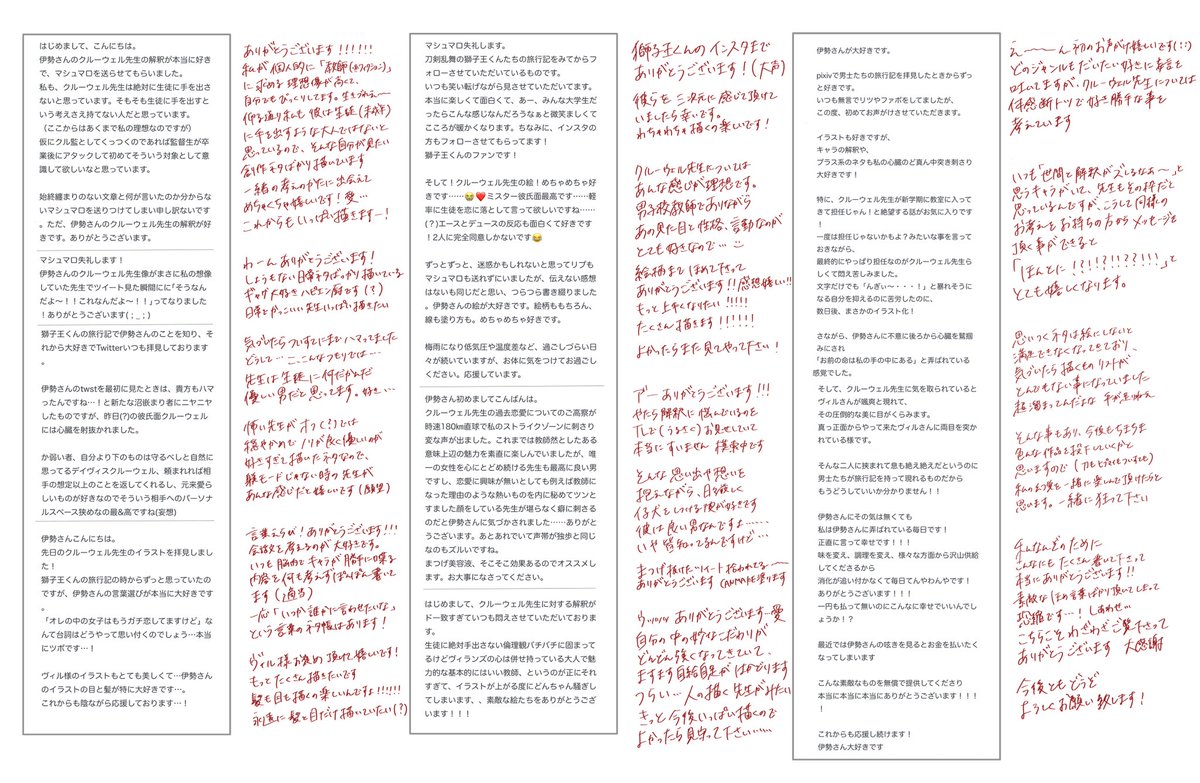 はじめまして、こんにちは。
伊勢さんのクルーウェル先生の解釈が本当に好き
で、マシュマロを送らせてもらいました。
私も、クルーウェル先生は絶対に生徒に手を出さ
ないと思っています。そもそも生徒に手を出すと
いう考えさえ持てない人だと思っています。
（ここからはあくまで私の理想なのですが）
仮にクル監としてくっつくのであれば監督生が卒
業後にアタックして初めてそういう対象として意
識して欲しいなと思っています。
始終纏まりのない文章と何が言いたのか分からな
いマシュマロを送りつけてしまい申し訳ないです
。ただ、伊勢さんのクルーウェル先生の解釈が好
きです。ありがとうございます。
マシュマロ失礼します！
伊勢さんのクルーウェル先生像がまさに私の想像
していた先生でツイート見た瞬間にに「そうなん
だよ〜！！これなんだよ〜！！」ってなりました
！ありがとうございます(；_；)
獅子王くんの旅行記で伊勢さんのことを知り、そ
れから大好きでTwitterいつも拝見しております
。
伊勢さんのtwstを最初に見たときは、貴方もハマ
ったんですね…！と新たな沼嵌まり者にニヤニヤ
したものですが、昨日(?)の彼氏面クルーウェル
には心臓を射抜かれました。
か弱い者、自分より下のものは守るべしと自然に
思ってるデイヴィスクルーウェル、頼まれれば相
手の想定以上のことを返してくれるし、元来愛ら
しいものが好きなのでそういう相手へのパーソナ
ルスペース狭めなの最&高ですね(妄想)
伊勢さんこんにちは。
先日のクルーウェル先生のイラストを拝見しまし
た！
獅子王くんの旅行記の時からずっと思っていたの
ですが、伊勢さんの言葉選びが本当に大好きです
。
「オレの中の女子はもうガチ恋してますけど」なん
て台詞はどうやって思い付くのでしょう…本当
にツボです…！
ヴィル様のイラストもとても美しくて…伊勢さん
のイラストの目と髪が特に大好きです…。
これからも陰ながら応援しております…！
ありがとうございます！！！！！！
私が個人的に「教師(ホフィクション)」
に求める理想像が高くて、
自分でもびっくりしてます。
仰る通り私も彼は生徒(未成年)
に手を出すような大人ではないと
思っているので、そんな自分が見たい
創作ネタばかり描いています
一緒の考えのかたに出会えて
めちゃくちゃ嬉しいです！愛…
これからもいっぱい描きますー！
わーん ありがとうございます！
しょうもない日常ネタばかり描いている
ギャグ大好き ハピエン厨です(？)
日常とかっこいい先生いっぱい描きたい
気づいたらついすてにまたハマってました
どうして…こんなつもりでは…
先生は生徒に何だかんだ
優しい男だと思ってます。好き…
怖い先生がオフ(？)では
穏やかで ノリが良く優しいのが
好きすぎて描いたネタなので、
躾モードじゃない時の先生が
あんな感じだと嬉しいです(願望)
言葉えらび！ありがとうございます！！！
会話文を考えるのが大好きです。
いつも脳内でキャラが勝手に喋る
内容を何も考えずぽんぽん書いて
ます(適当)
一応「いつか誰かに言わせたいな」
という言葉のネタ帳はあります！
ヴィル様お褒め頂けて嬉しいです！
もっとたくさん描きたいです
髪も目も描くの楽しいんですよ！！！！！
永遠に髪と目だけ描いていたい(？)
マシュマロ失礼します。
刀剣乱舞の獅子王くんたちの旅行記をみてからフ
ォローさせていただいているものです。
いつも笑い転げながら見させていただいてます。
本当に楽しくて面白くて、あー、みんな大学生だ
ったらこんな感じなんだろうなぁと微笑ましくて
こころが暖かくなります。ちなみに、インスタの
方もフォローさせてもらってます！
獅子王くんのファンです！
そして！クルーウェル先生の絵！めちゃめちゃ好
きです……😭❤️ミスター彼氏面最高です……軽
率に生徒を恋に落として言って欲しいですね……
(？)エースとデュースの反応も面白くて好きです
！2人に完全同意しかないです😂
ずっとずっと、迷惑かもしれないと思ってリプも
マシュマロも送れずにいましたが、伝えない感想
はないも同じだと思い、つらつら書き綴りました
。伊勢さんの絵が大好きです。絵柄ももちろん、
線も塗り方も。めちゃめちゃ好きです。
梅雨になり低気圧や温度差など、過ごしづらい日
々が続いていますが、お体に気をつけてお過ごし
ください。応援しています。
伊勢さん初めましてこんばんは。
クルーウェル先生の過去恋愛についてのご高察が
時速180km直球で私のストライクゾーンに刺さり
変な声が出ました。これまでは教師然としたある
意味上辺の魅力を素直に楽しんでいましたが、唯
一の女性を心にとどめ続ける先生も最高に良い男
ですし、恋愛に興味が無いとしても例えば教師に
なった理由のような熱いものを内に秘めてツンと
すました顔をしている先生が堪らなく癖に刺さる
のだと伊勢さんに気づかされました……ありがと
うございます。あとあれでいて声帯が独歩と同じ
なのもズルいですね。
まつげ美容液、そこそこ効果あるのでオススメし
ます。お大事になさってください。
はじめまして、クルーウェル先生に対する解釈が
ドー致すぎていつも悶えさせていただいておりま
す。
生徒に絶対手出さない倫理観バチバチに固まって
るけどヴィランズの心は併せ持っている大人で魅
力的な基本的にはいい教師、というのが正にそれ
すぎて、イラストが上がる度にどんちゃん騒ぎし
てしまいます、、素敵な絵たちをありがとうござ
います！！！
獅子王くんのインスタまで
ありがとうございます！(大声)
彼らを三次元に感じて頂けて
いましたら幸いです。
わちゃわちゃ描くの楽しいです！
クルーウェル先生については
あんな感じが理想です。
男子校教師でありながら
あの見た目と性格、言動なのが
とても好きなので…
絵描までほめて下さって
ありがとうございます！！感想嬉しい！！
もっと上手くなりたい！！！！！
たくさん描きます！！！！！！
よかったらまた見てやって下さい！
アーありがとうございます！！！
やたら解釈に悩んでいるのを
TLで(うるさく)お見せしていて
本当にすいません 模索中です
そんな思い出や恐いを
抱えながら、日々楽しく
仔犬をしつける彼が好きです
彼は良い男なんですよ……
いや皆知ってるんですけど…
まつげ抜けたツイート拾われてる〜
ありがとうございます CANMAKE塗ります
ウッッッ ありがとうございます…愛
自分の中の妙なこだわりが
どんどん強くなってきていて、
ますます自給自足がはかどります
つらい… 人の描く先生がみたい
きっと今後いっぱい描くので
よかったら見守って下さい……
伊勢さんが大好きです。
pixivで男士たちの旅行記を拝見したときからずっ
と好きです。
いつも無言でリツやファボをしてましたが、
この度、初めてお声がけさせていただきます。
イラストも好きですが、
キャラの解釈や、
プラス系のネタも私の心臓のど真ん中突き刺さり
大好きです！
特に、クルーウェル先生が新学期に教室に入って
きて担任じゃん！と絶望する話がお気に入りです
！
一度は担任じゃないかもよ？みたいな事を言って
おきながら、
最終的にやっぱり担任なのがクルーウェル先生ら
しくて悶え苦しみました。
文字だけでも「んぎぃ〜・・・！」と暴れそうに
なる自分を抑えるのに苦労したのに、
数日後、まさかのイラスト化！
さながら、伊勢さんに不意に後ろから心臓を鷲掴
みにされ
「お前の命は私の手の中にある」と弄ばれている
感覚でした。
そして、クルーウェル先生に気を取られていると
ヴィルさんが颯爽と現れて、
その圧倒的な美に目がくらみます。
真っ正面からやって来たヴィルさんに両目を突か
れている様です。
そんな二人に挟まれて息も絶え絶えだというのに
男士たちが旅行記を持って現れるものだから
もうどうしていいか分かりません！！
伊勢さんにその気は無くても
私は伊勢さんに弄ばれている毎日です！
正直に言って幸せです！！！
味を変え、調理を変え、様々な方面から沢山供給
してくださるから
消化が追い付かなくて毎日てんやわんやです！
ありがとうございます！！！
一円も払って無いのにこんなに幸せでいいんでし
ょうか！？
最近では伊勢さんの呟きを見るとお金を払いたく
なってしまいます
こんな素敵なものを無償で提供してくださり
本当に本当に本当にありがとうございます！！！
！
これからも応援し続けます！
伊勢さん大好きです
え〜〜〜ん 初のお声がけ嬉しいです(；；)
どのジャンルもだいたい好きに妄言を
吐いてますが、クルーウェル先生については
体感断トツで好き勝手な事を
考えています
いつも「世間と解釈がズレるなぁ〜」と
思うキャラがいて、先生もその枠だと
思っているんですが、こうして同様の
お考えをお持ちの方からメッセージを
頂く事ができると
「ほんとに！?!!?!!??!!!」と
とても嬉しくなります。
思いつくネタは絵にしないと
満足できなくなってきており、
気づいたら描くものリストが
とんでもない事になっていました
超溜まってんだよな 手が足りねぇ
そんな事もあり、今後もちまちま
色んな作品を投下していくかと
思いますので
私の幻覚と一緒に楽しんで頂けたらと
思います。一緒に狂って下さい
そんなんどのために
こんなにもたくさん書いて下さって
本当にありがとうございます！！
素敵なほめ言葉ばかり頂いてしまって
恐縮です…！しあわせ…
こちらこそわざわざご覧下さって
ありがとうございます 大感謝
今後ともどうぞ
よろしくお願い致します！